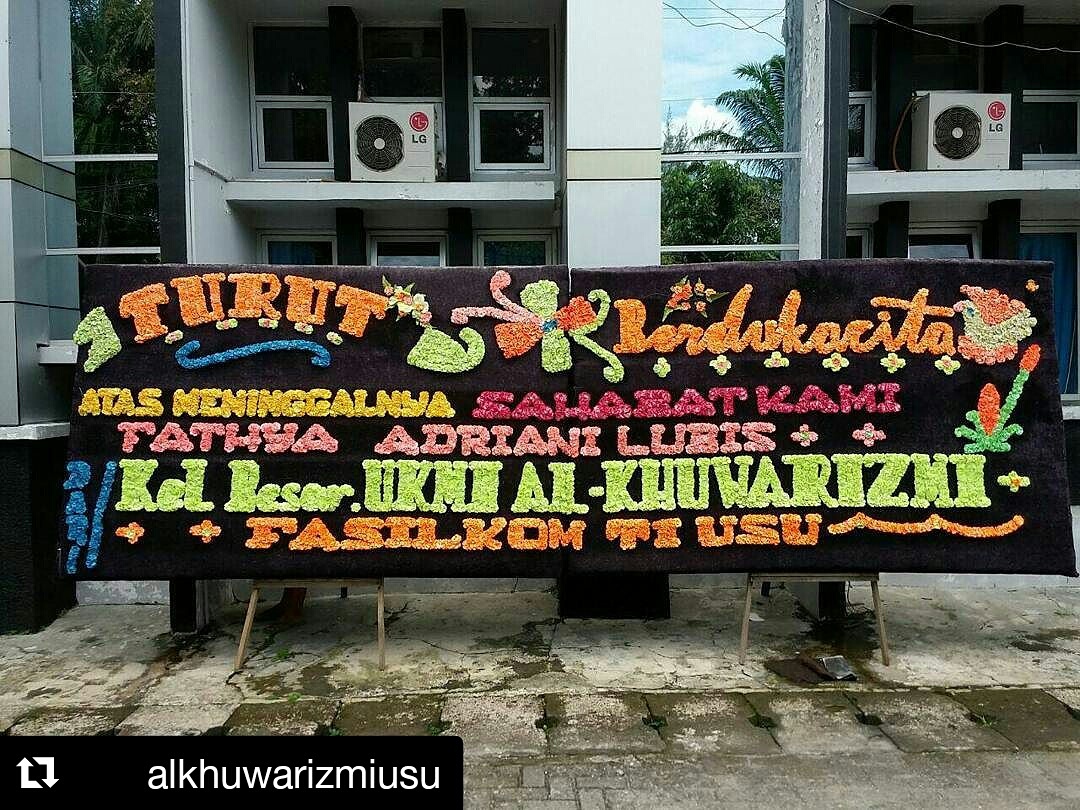 LG
LG
TURUT Berdukacita
ATAS MENINGGALNYA SAHABAT KAMI
FATHYA ADRIANI LUBIS
DARI
Kel Besar. UKMI AL-KHUWARIZMI
FASILKOM TI USU
alkhuwarizmiusu